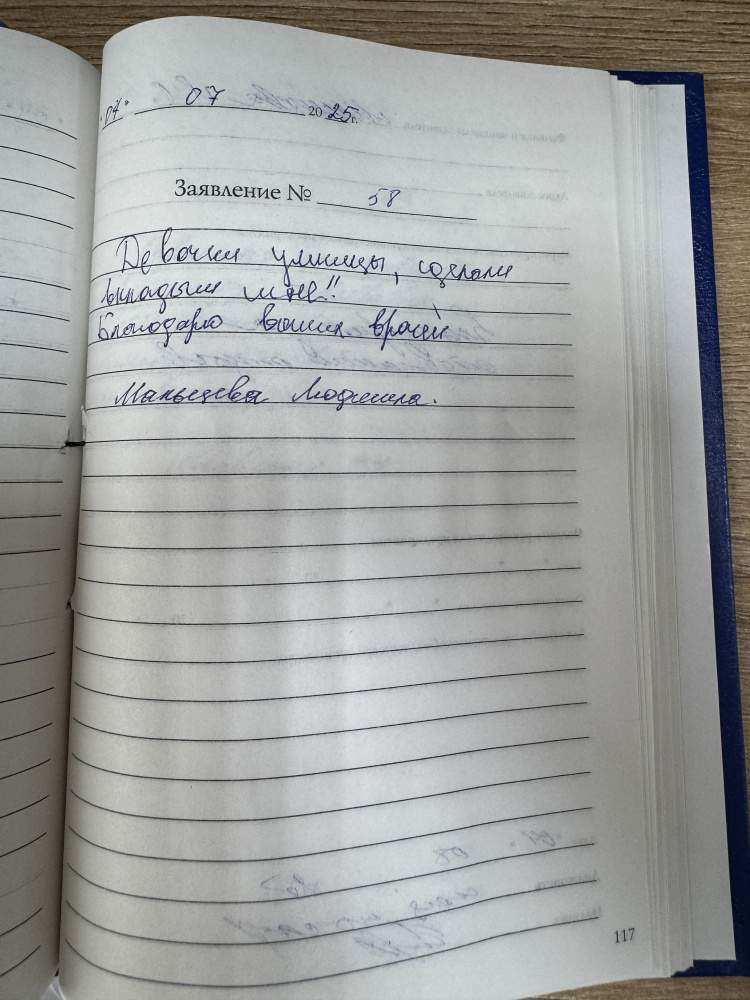 07. 07 2025г.
Заявление № 58
Девочки умницы, сделали
вкладыши мне!!
Благодарю ваших врачей
Мальцева Людмила.
117